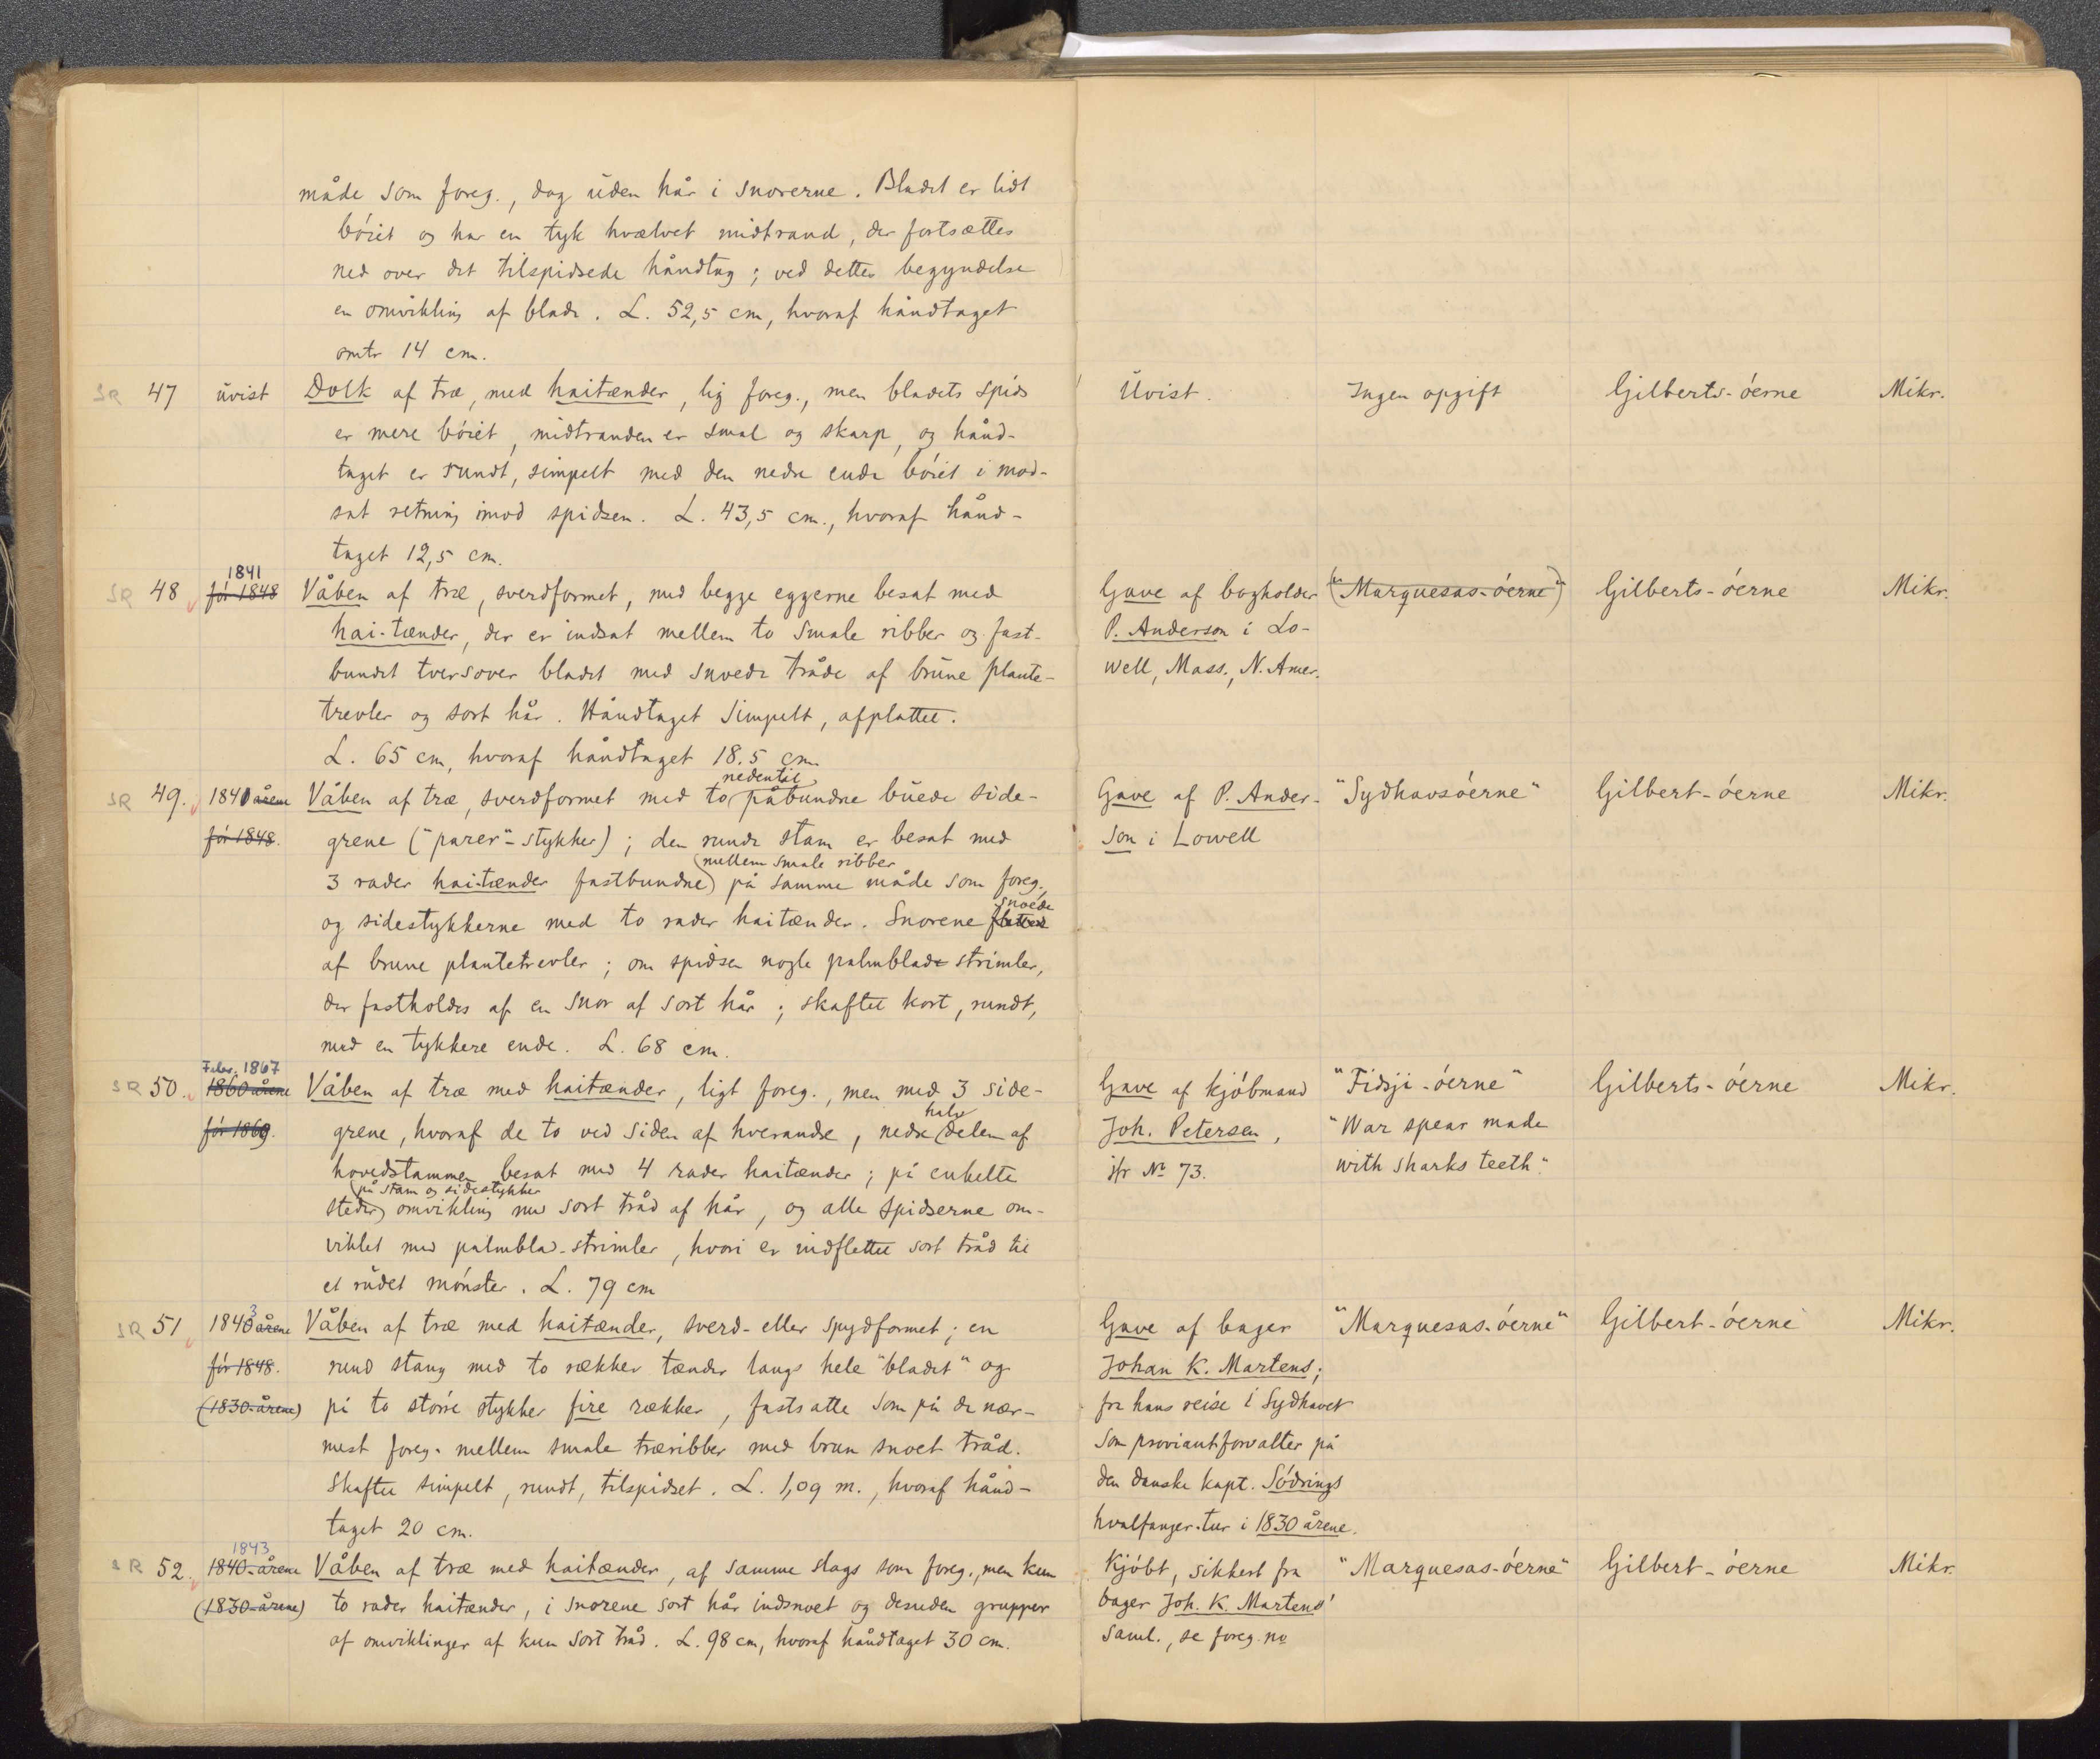 måde som foreg., dog uden hår i snorerne. Bladet er lidt
bøiet og har en tyk hvælvet midtrand, der fortsættes
ned over det tilspidsede håndtag; ved dettes begyndelse
en omvikling af blade. L. 52,5 cm, hvoraf håndtaget
omtr 14 cm.
SR 47 uvist Dolk af træ, med haitænder, lig foreg., men bladets spids
er mere bøiet, midtranden er smal og skarp, og hånd-
taget er rundt, simpelt med den nedre ende bøiet i mod-
sat retning imod spidsen. L. 43,5 cm., hvoraf hånd-
taget 12,5 cm.
Uvist. Ingen opgift Gilberts-øerne Mikr.
1841
SR 48 før 1848 Våben af træ, sverdformet, med begge eggerne besat med
hai-tænder, der er indsat mellem to smale ribber og fast-
bundet tversover bladet med snoede tråde af brune plante-
trevler og sort hår. Håndtaget simpelt, afplattet.
L. 65 cm, hvoraf håndtaget 18.5 cm.
Gave af bogholder ("Marquesas-øerne") Gilberts-øerne Mikr.
P. Anderson i Lo-
well, Mass., N. Amer.
nedentil
SR 49. 1840 årene Våben af træ, sverdformet med to påbundne buede side-
før 1848. grene ("parer"-stykker); den runde stam er besat med
mellem smale ribber
3 rader haitænder fastbundne på samme måde som foreg.,
snoede
og sidestykkerne med to rader haitænder. Snorene flettet
af brune plantetrevler; om spidsen nogle palmblade strimler,
der fastholdes af en snor af sort hår; skaftet kort, rundt,
med en tykkere ende. L. 68 cm.
Gave af P. Ander- "Sydhavsøerne" Gilbert-øerne Mikr.
son i Lowell
Febr. 1867
SR 50. 1860 årene Våben af træ med haitænder, ligt foreg., men med 3 side-
halv
før 1869. grene, hvoraf de to ved siden af hverandre, nedre delen af
hovedstammen besat med 4 rader haitænder; på enkelte
på stam og sidestykker
steder omvikling med sort tråd af hår, og alle spidserne om-
viklet med palmblad-strimler, hvori er indflettet sort tråd til
et rudet mønster. L. 79 cm
Gave af kjøbmand "Fidsji-øerne" Gilberts-øerne Mikr.
Joh. Petersen, "War spear made
jfr No 73. with sharks teeth."
3
SR 51 1840 årene Våben af træ med haitænder, sverd- eller spydformet; en
før 1848. rund stang med to rækker tænder langs hele "bladet" og
(1830-årene) på to større stykker fire rækker, fastsatte som på de nær-
mest foreg. mellem smale træribber med brun snoet tråd.
Skaftet simpelt, rundt, tilspidset. L. 1,09 m., hvoraf hånd-
taget 20 cm.
Gave af bager "Marquesas-øerne" Gilbert-øerne Mikr.
Johan K. Martens;
fra hans reise i Sydhavet
som proviantforvalter på
den danske kapt. Sødrings
hvalfanger-tur i 1830 årene.
1843
SR 52. 1840-årene Våben af træ med haitænder, af samme slags som foreg., men kun
(1830-årene) to rader haitænder, i snorene sort hår indsnoet og desuden grupper
af omviklinger af kun sort tråd. L. 98 cm, hvoraf håndtaget 30 cm.
Kjøbt, sikkert fra "Marquesas-øerne" Gilbert-øerne Mikr.
bager Joh. K. Martens'
saml., se foreg. no